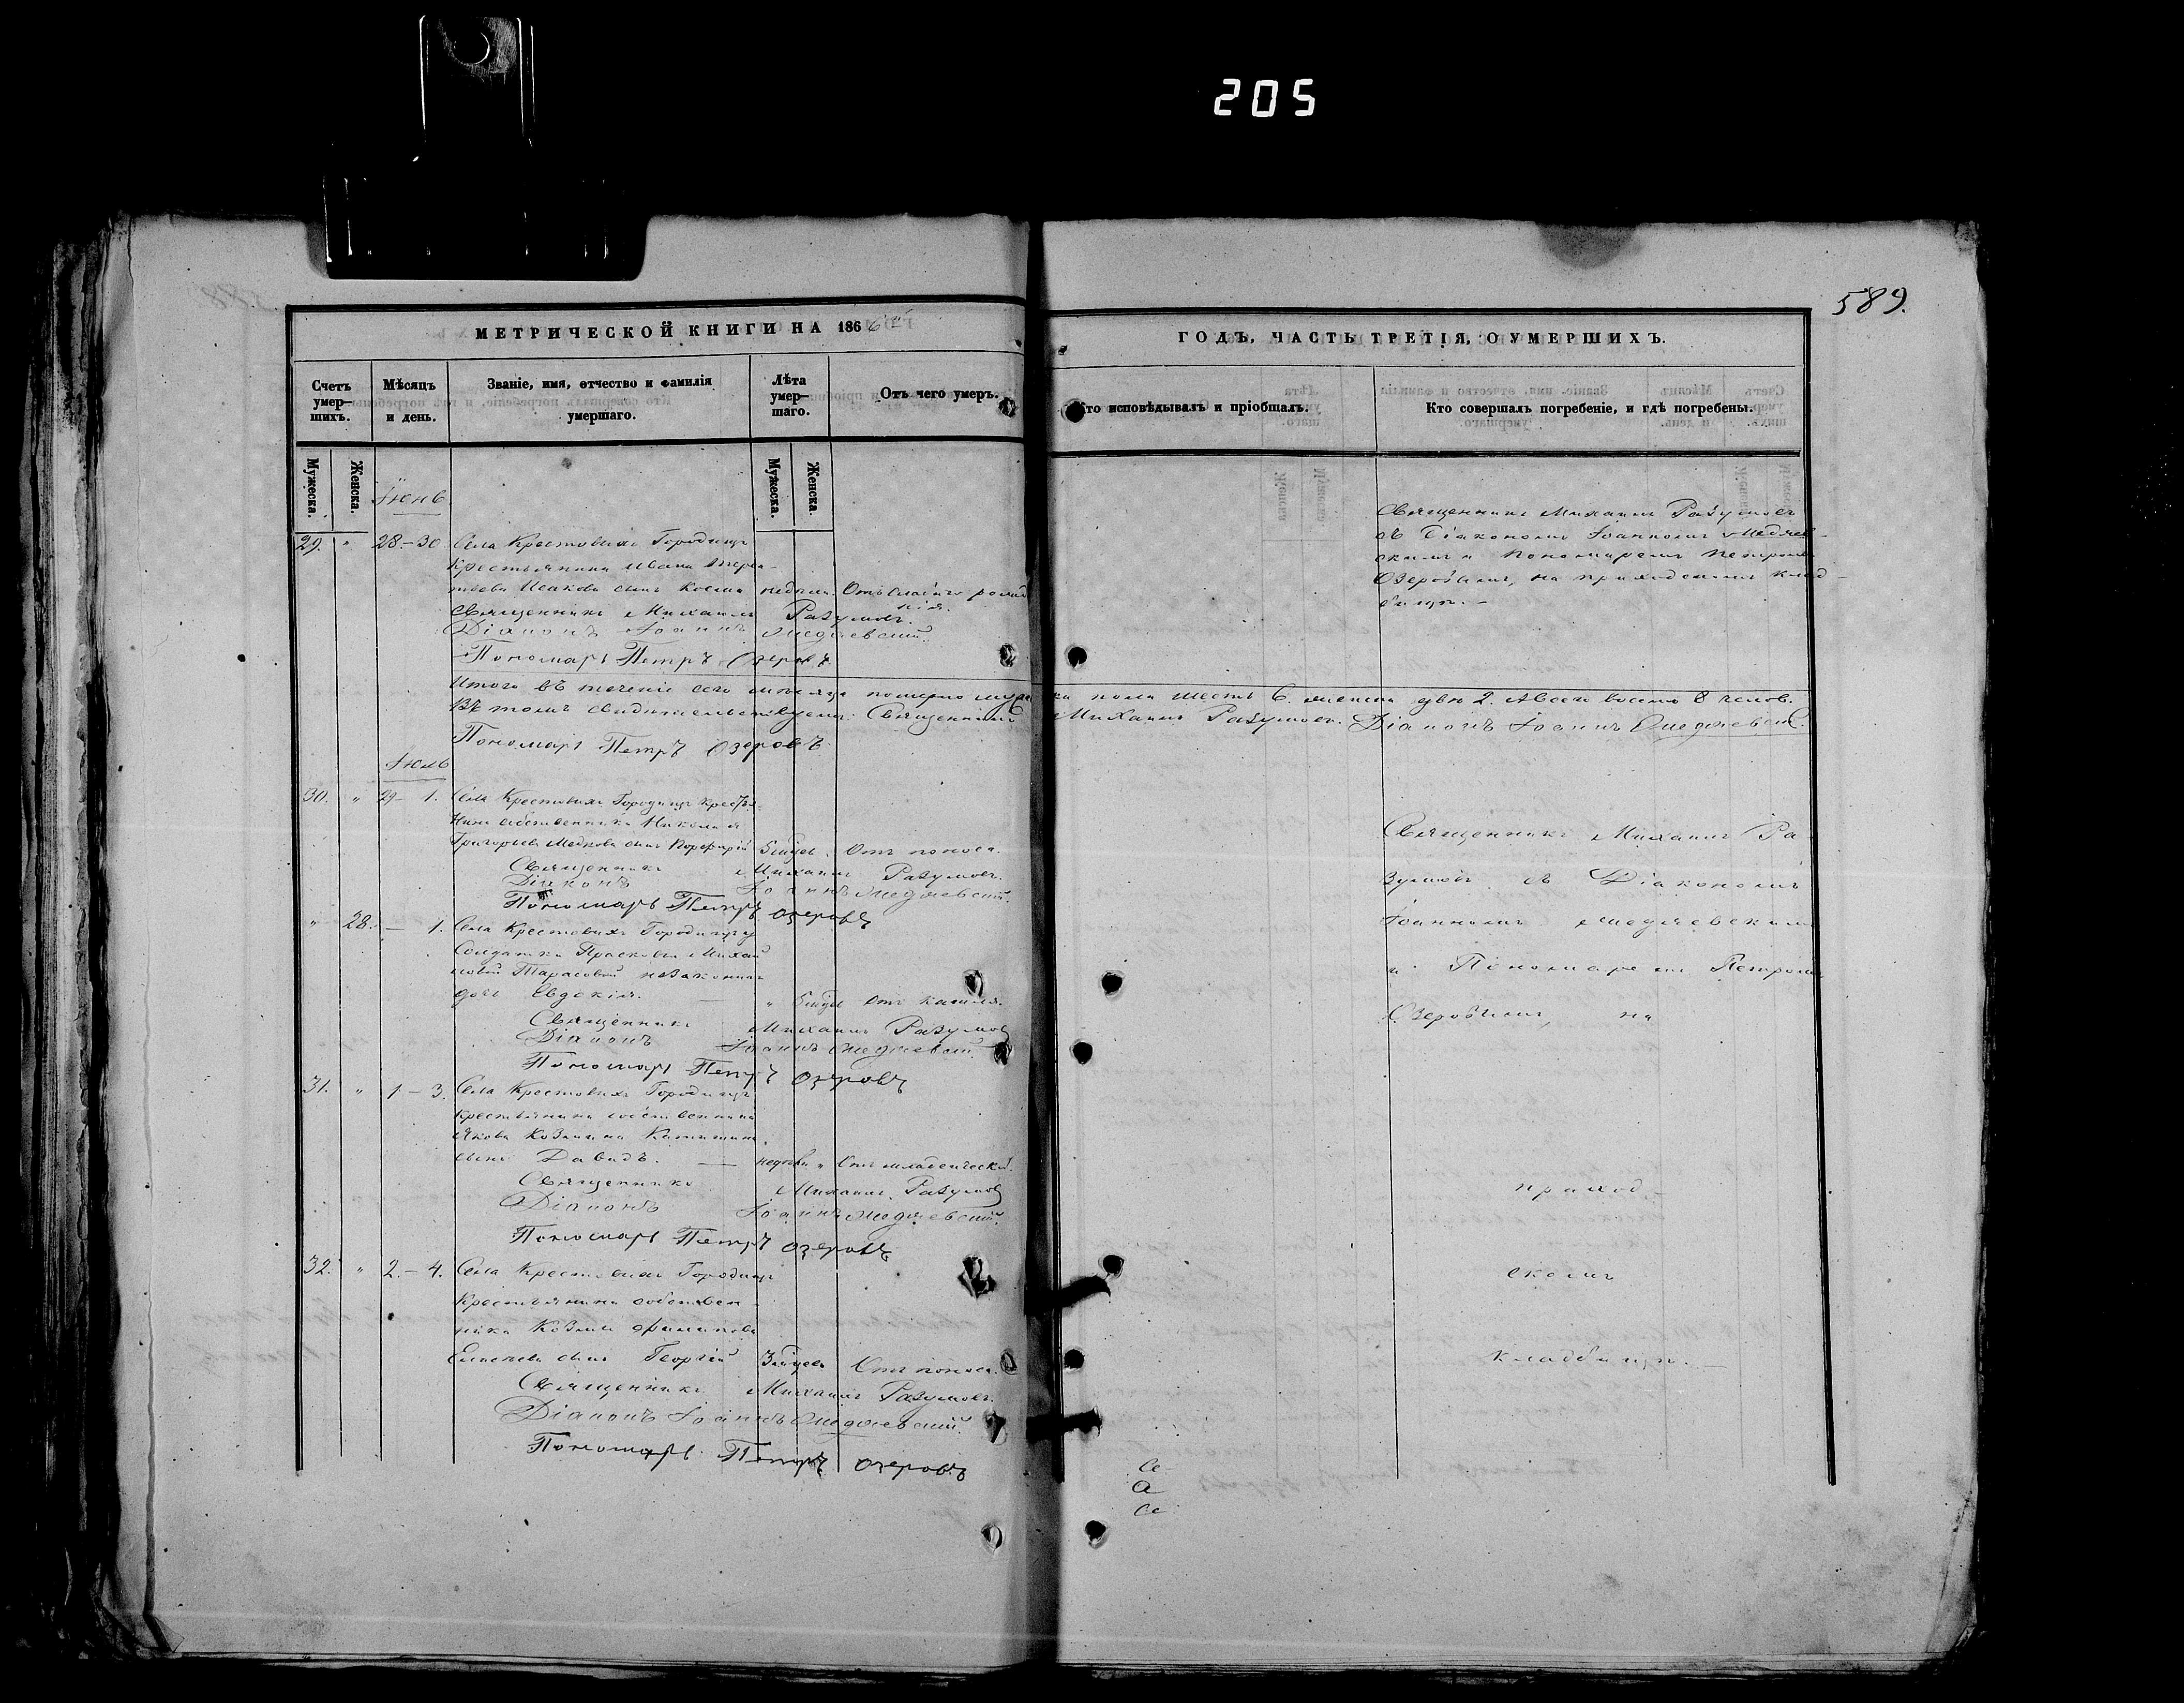 205
589.
МЕТРИЧЕСКОЙ КНИГИ НА 1866й
ГОДЪ, ЧАСТЬ ТРЕТІЯ, О УМЕРШИХЪ.
Счетъ умер-шихъ.
Мѣсяцъ и день.
Званіе, имя, отчество и фамилія умершаго.
Лѣта умер-шаго.
Отъ чего умеръ.
то исповѣдывалъ и пріобщалъ.
Кто совершалъ погребеніе, и гдѣ погребены.
Мужеска.
Женска.
Мужеска.
Женска.
Іюнь
29. " 28.-30. Села Крестовыхъ Городищъ
Крестьянина Ивана
Исакова сынъ Косма недѣли. Отъ слабаго рожде
нія.
Священникъ Михаилъ Разумовъ.
Діаконъ Іоаннъ Медяевскій.
Пономарь Петръ Озеровъ
Священникъ Михаилъ Разумовъ
съ Діакономъ Іоанномъ Медяев-
скимъ и Пономаремъ Петромъ
Озеровымъ, на приходскомъ клад-
бищѣ.-
Итого въ теченіе сего мѣсяца померло муже
ка пола шесть 6. женска два 2. А всего восемь 8 челов.
Въ томъ свидѣтельствуемъ: Священникъ
Михаилъ Разумовъ. Діаконъ Іоаннъ Медяевскій.
Пономарь Петръ Озеровъ
Іюль
30. " 29- 1. Села Крестовыхъ Городищъ Кресть-
янина собственника Николая
Григорьева Медкова сынъ Порфирій 5 мѣсяц. Отъ поноса.
Священникъ Михаилъ Разумовъ.
Діаконъ Іоаннъ Медяевскій.
Пономарь Петръ Озеровъ
" 28. - 1. Села Крестовыхъ Городищъ
Солдатки Прасковьи Михай
ловой Тарасовой незаконная
дочь Евдокія. " 5 мѣсяц. Отъ кашля.
Священникъ Михаилъ Разумовъ
Діаконъ Іоаннъ Медяевскій.
Пономарь Петръ Озеровъ
31. " 1 - 3. Села Крестовыхъ Городищъ
Крестьянина собственника
Якова Козмина
сынъ Давидъ. недѣли " Отъ младенческой.
Священникъ Михаилъ Разумовъ
Діаконъ Іоаннъ Медяевскій.
Пономарь Петръ Озеровъ
32. " 2.- 4. Села Крестовыхъ Городищъ
Крестьянина собствен-
ника Козмы Филипова
сынъ Георгій 3 мѣсяц. Отъ поноса.
Священникъ Михаилъ Разумовъ.
Діаконъ Іоаннъ Медяевскій.
Пономарь Петръ Озеровъ
Священникъ Михаилъ Ра
зумовъ съ Діакономъ
Іоанномъ Медяевскимъ
и Пономаремъ Петромъ
Озеровымъ, на
приход-
скомъ
кладбищѣ.